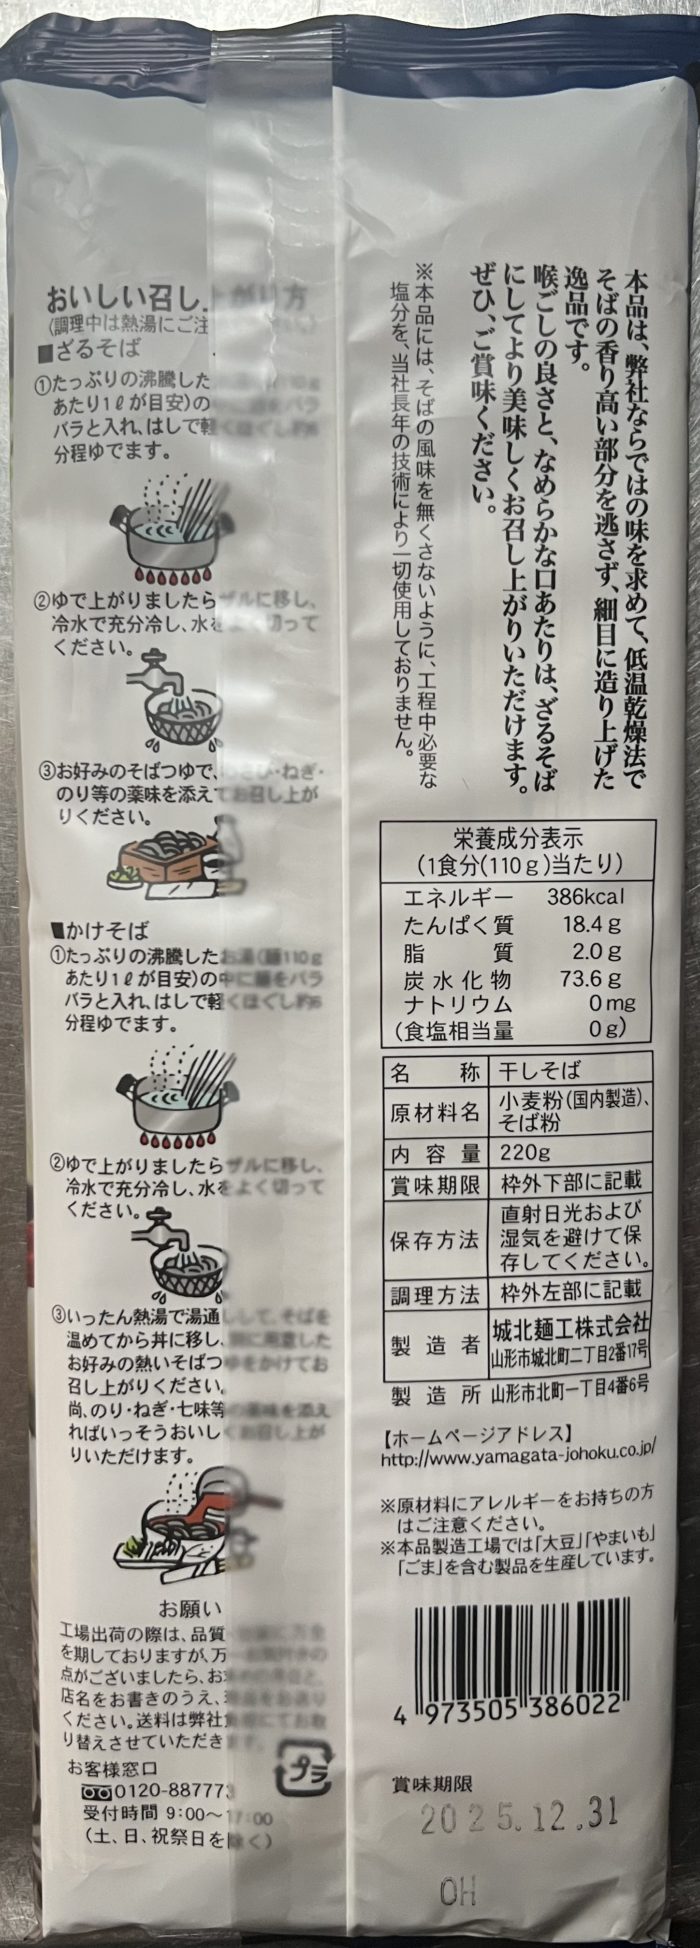 本品は、弊社ならではの味を求めて、低温乾燥法で
そばの香り高い部分を逃さず、細目に造り上げた
逸品です。
喉ごしの良さと、なめらかな口あたりは、ざるそば
にしてより美味しくお召し上がりいただけます。
ぜひ、ご賞味ください。
※本品には、そばの風味を無くさないように、工程中必要な
塩分を、当社長年の技術により一切使用しておりません。
おいしい召し上がり方
(調理中は熱湯にご注
■ざるそば
①たっぷりの沸騰した
あたり1ℓが目安)の
バラと入れ、はしで軽くほぐし約6
分程ゆでます。
②ゆで上がりましたらザルに移し、
冷水で充分冷し、水をよく切って
ください。
③お好みのそばつゆで、わさび・ねぎ・
のり等の薬味を添えてお召し上が
りください。
■かけそば
①たっぷりの沸騰したお湯(麺110g
あたり1ℓが目安)の中に麺をバラ
バラと入れ、はしで軽くほぐし約6
分程ゆでます。
②ゆで上がりましたらザルに移し、
冷水で充分冷し、水をよく切って
ください。
③いったん熱湯で湯通しして、そばを
温めてから丼に移し、別に用意した
お好みの熱いそばつゆをかけてお
召し上がりください。
尚、のり・ねぎ・七味等の薬味を添え
ればいっそうおいしくお召し上が
りいただけます。
お願い
工場出荷の際は、品質 に万全
を期しておりますが、万
点がございましたら、お
店名をお書きのうえ、
ください。送料は弊社
り替えさせていただき
お客様窓口
0120-887773
受付時間 9:00〜17:00
(土、日、祝祭日を除く)
プラ
栄養成分表示
(1食分(110g)当たり)
エネルギー 386kcal
たんぱく質 18.4g
脂質 2.0g
炭水化物 73.6g
ナトリウム 0mg
(食塩相当量 0g)
名称 干しそば
原材料名 小麦粉(国内製造)、
そば粉
内容量 220g
賞味期限 枠外下部に記載
保存方法 直射日光および
湿気を避けて保
存してください。
調理方法 枠外左部に記載
製造者 城北麺工株式会社
山形市城北町二丁目2番17号
製造所 山形市北町一丁目4番6号
【ホームページアドレス】
http://www.yamagata-johoku.co.jp/
※原材料にアレルギーをお持ちの方
はご注意ください。
※本品製造工場では「大豆」「やまいも」
「ごま」を含む製品を生産しています。
4 973505 386022
賞味期限
2025.12.31
OH